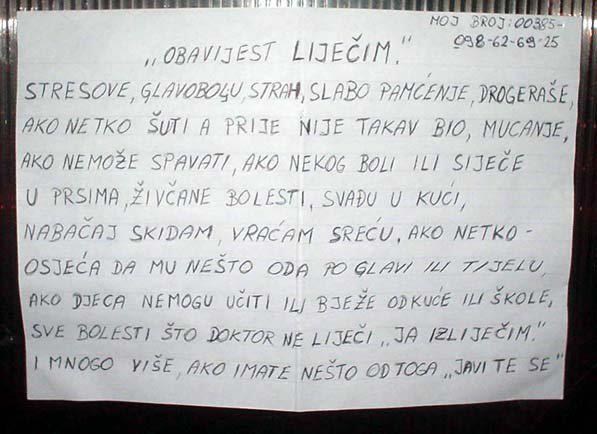 MOJ BROJ: 00385-
098-62-69-25
„OBAVIJEST LIJEČIM.“
STRESOVE, GLAVOBOĻU, STRAH, SLABO PAMĆENJE, DROGERAŠE,
AKO NETKO ŠUTI A PRIJE NIJE TAKAV BIO, MUCANJE,
AKO NEMOŽE SPAVATI, AKO NEKOG BOLI ILI SIJEČE
U PRSIMA, ŽIVČANE BOLESTI, SVAĐU U KUĆI,
NABAČAJ SKIDAM, VRAĆAM SREĆU, AKO NETKO-
OSJEĆA DA MU NEŠTO ODA PO GLAVI ILI TIJELU,
AKO DJECA NEMOGU UČITI ILI BJEŽE ODKUĆE ILI ŠKOLE,
SVE BOLESTI ŠTO DOKTOR NE LIJEČI „JA IZLIJEČIM.“
I MNOGO VIŠE, AKO IMATE NEŠTO OD TOGA „JAVITE SE“